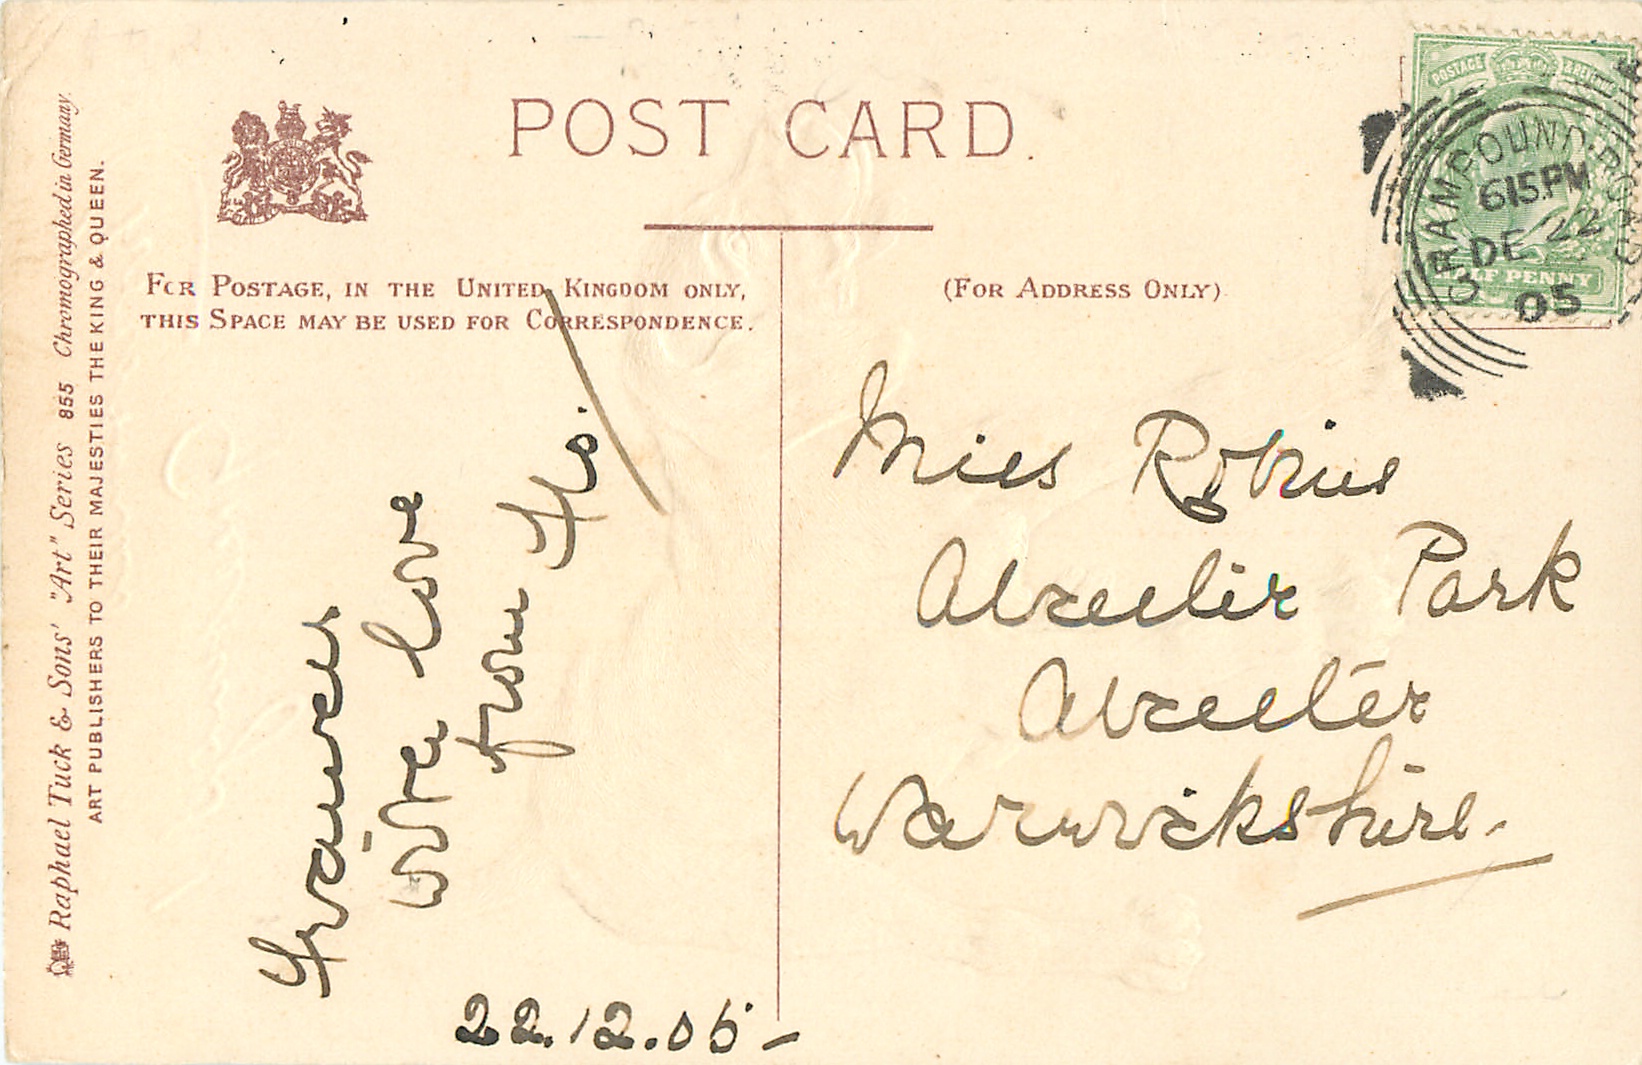 POST CARD.
FOR POSTAGE, IN THE UNITED KINGDOM ONLY,
THIS SPACE MAY BE USED FOR CORRESPONDENCE.
(FOR ADDRESS ONLY)
Raphael Tuck & Sons' "Art" Series 855 Chromographed in Germany.
ART PUBLISHERS TO THEIR MAJESTIES THE KING & QUEEN.
POSTAGE
HALF PENNY
GRAMPOUND ROAD
615PM
DE 22
05
with love
from
22.12.05-
Miss Robins
Alcester Park
Alcester
Warwickshire-